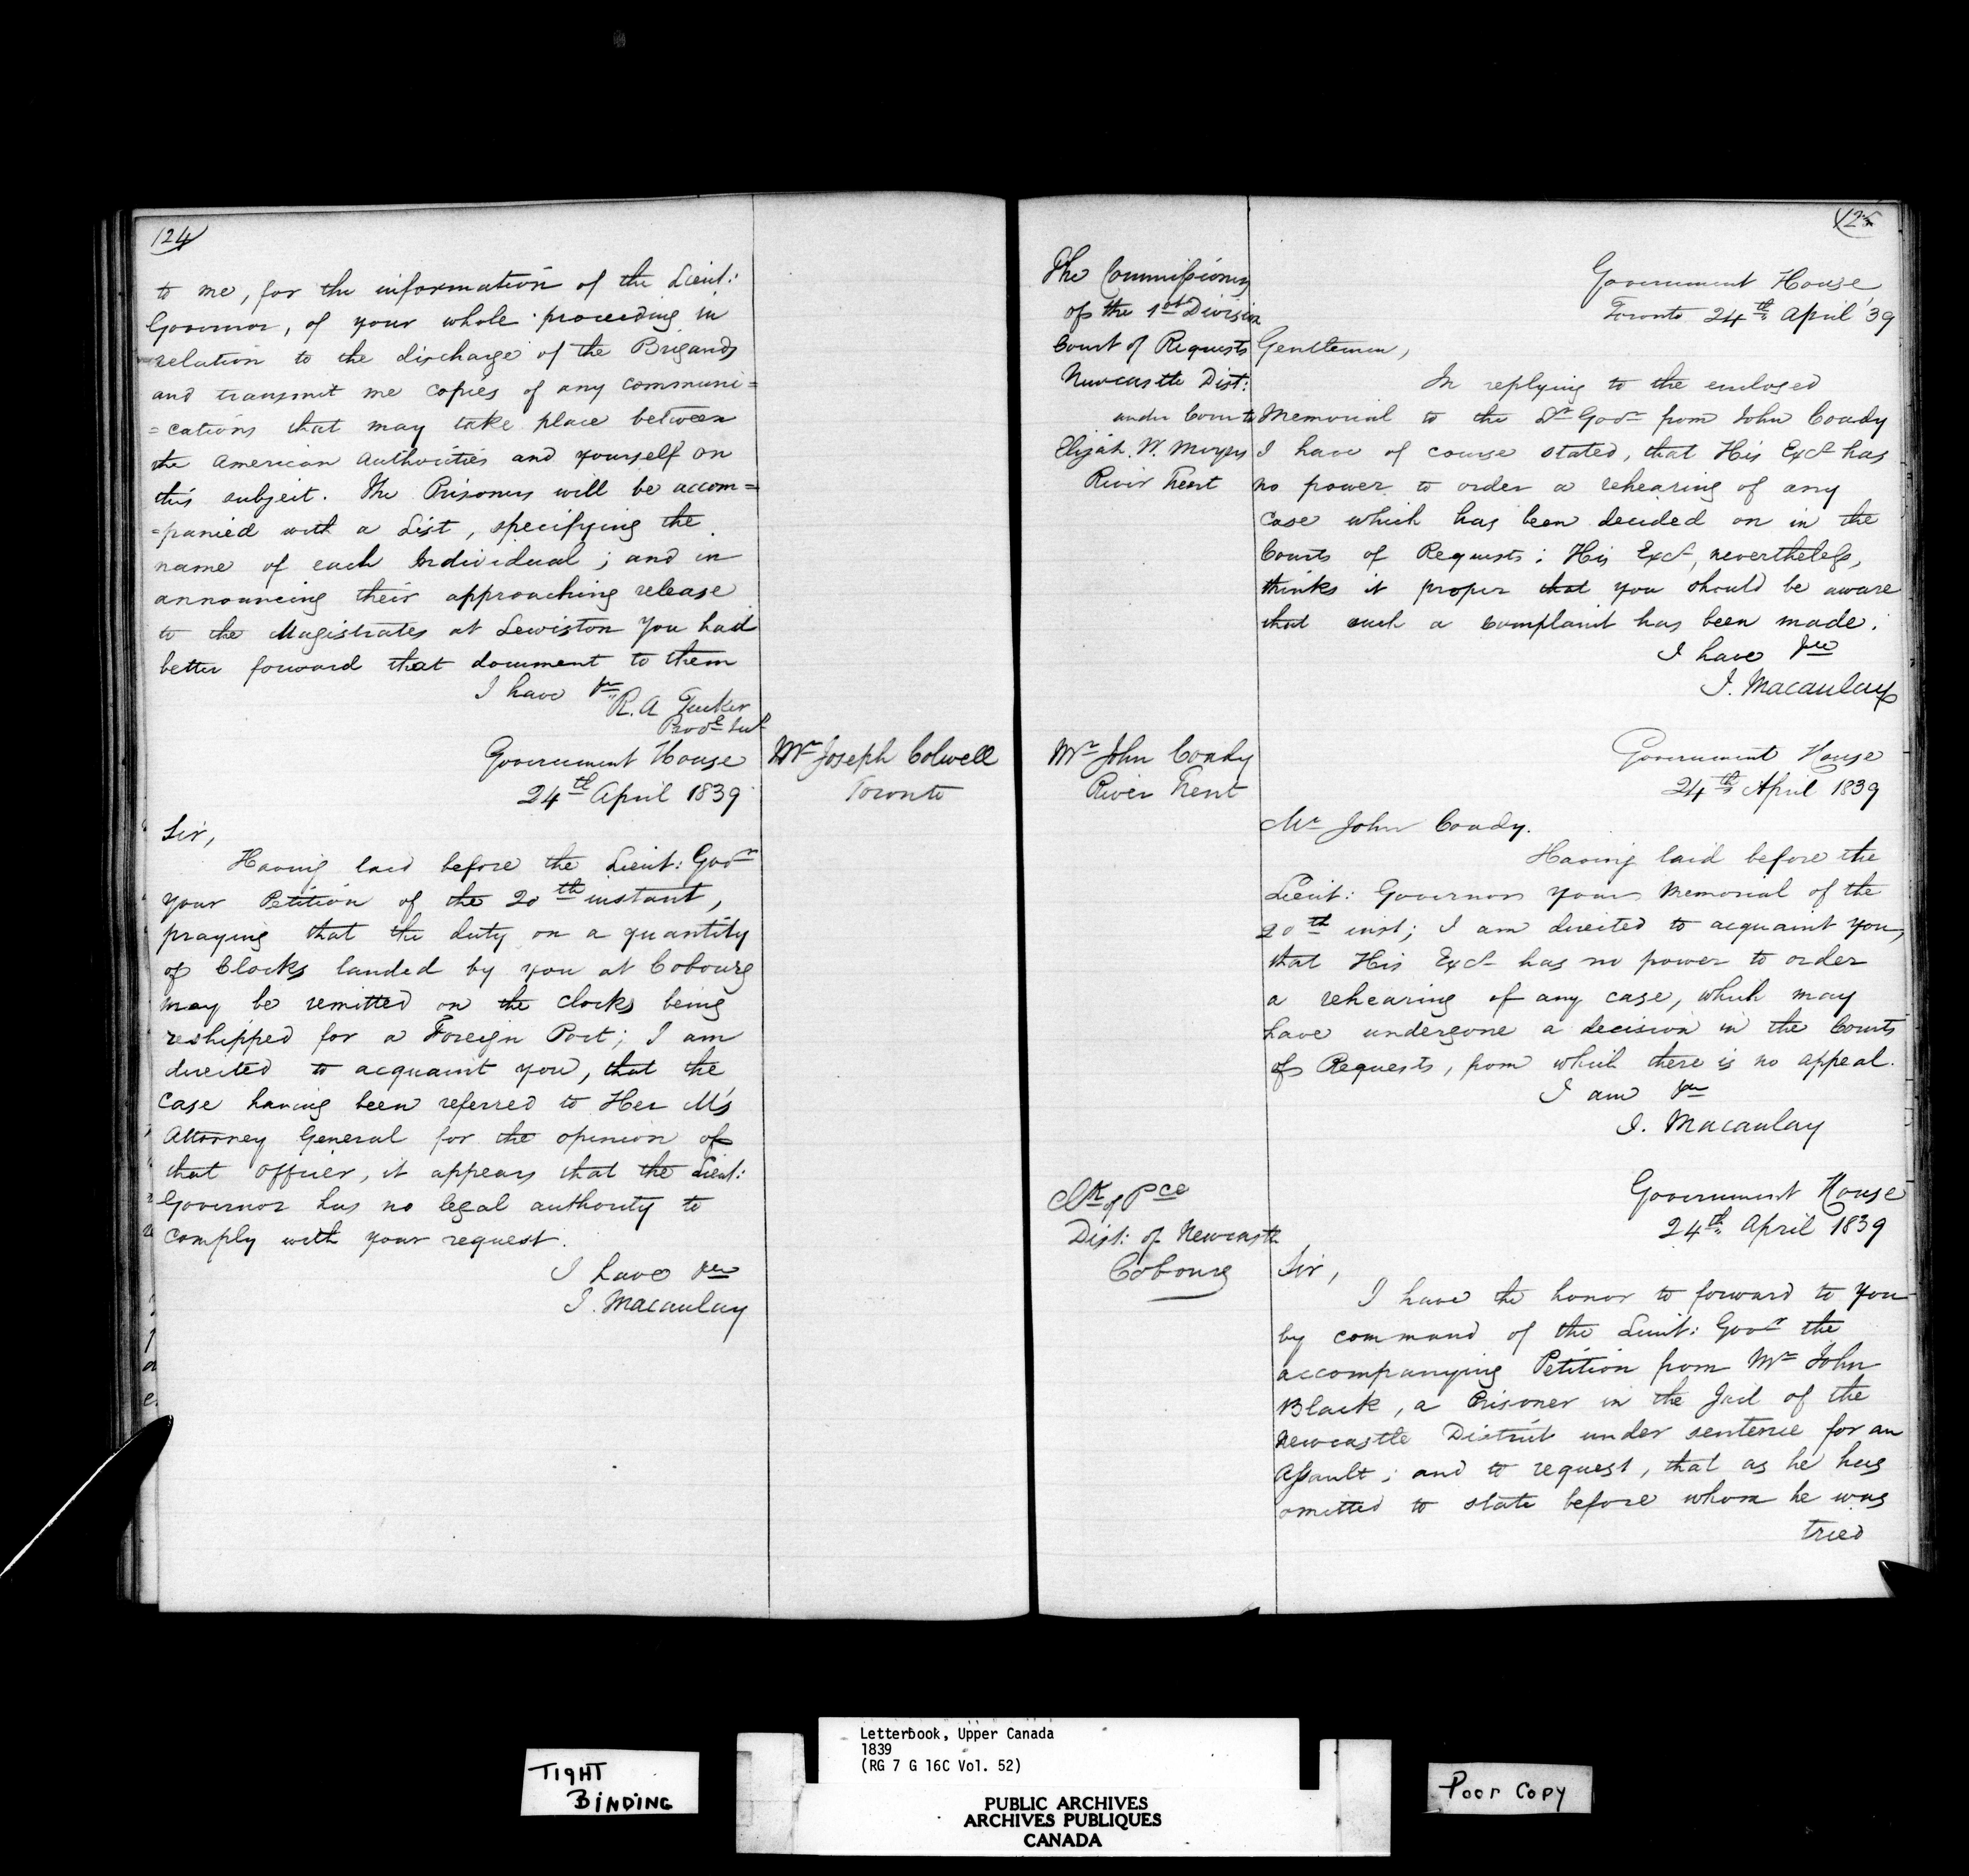 124
to me, for the information of the Lieut:
Governor, of your whole proceeding in
relation to the discharge of the Brigands
and transmit me copies of any communi=
=cations that may take place between
the American Authorities and yourself on
this subject. The Prisoners will be accom=
=panied with a List, specifying the
name of each Individual; and in
announcing their approaching release
to the Magistrates at Lewiston you had
better forward that document to them
I have &c
R. A Tucker
Government House
24th April 1839
Mr Joseph Colwell
Toronto
Sir,
Having laid before the Lieut: Govr
your Petition of the 20th instant,
praying that the duty on a quantity
of Clocks landed by you at Cobourg
may be remitted on the clocks being
reshipped for a Foreign Port; I am
directed to acquaint you, that the
case having been referred to Her M's
Attorney General for the opinion of
that officer, it appears that the Lieut:
Governor has no legal authority to
comply with your request.
I have &c
J. Macaulay
125
The Commissioners
of the 1st Division
Court of Requests
Newcastle Dist:
under Cover to
Elijah. W. Meyers
River Trent
Government House
Toronto 24th April '39
Gentlemen,
In replying to the enclosed
Memorial to the Lt Govr from John Coady
I have of course stated, that His Excy has
no power to order a rehearing of any
case which has been decided on in the
Courts of Requests; His Excy, nevertheless,
thinks it proper that you should be aware
that such a complaint has been made.
I have &c
J. Macaulay
Mr John Coady
River Trent
Government House
24th April 1839
Mr John Coady.
Having laid before the
Lieut: Governor your Memorial of the
20th inst; I am directed to acquaint you,
that His Excy has no power to order
a rehearing of any case, which may
have undergone a decision in the Courts
of Requests, from which there is no appeal.
I am &c
J. Macaulay
Clk of Pce
Dist: of Newcastle
Cobourg
Government House
24th April 1839
Sir,
I have the honor to forward to you
by command of the Lieut: Govr the
accompanying Petition from Mr John
Black, a Prisoner in the Jail of the
Newcastle District under sentence for an
Assault; and to request, that as he has
omitted to state before whom he was
tried
TIGHT
BINDING
Letterbook, Upper Canada
1839
(RG 7 G 16C Vol. 52)
PUBLIC ARCHIVES
ARCHIVES PUBLIQUES
CANADA
Poor Copy